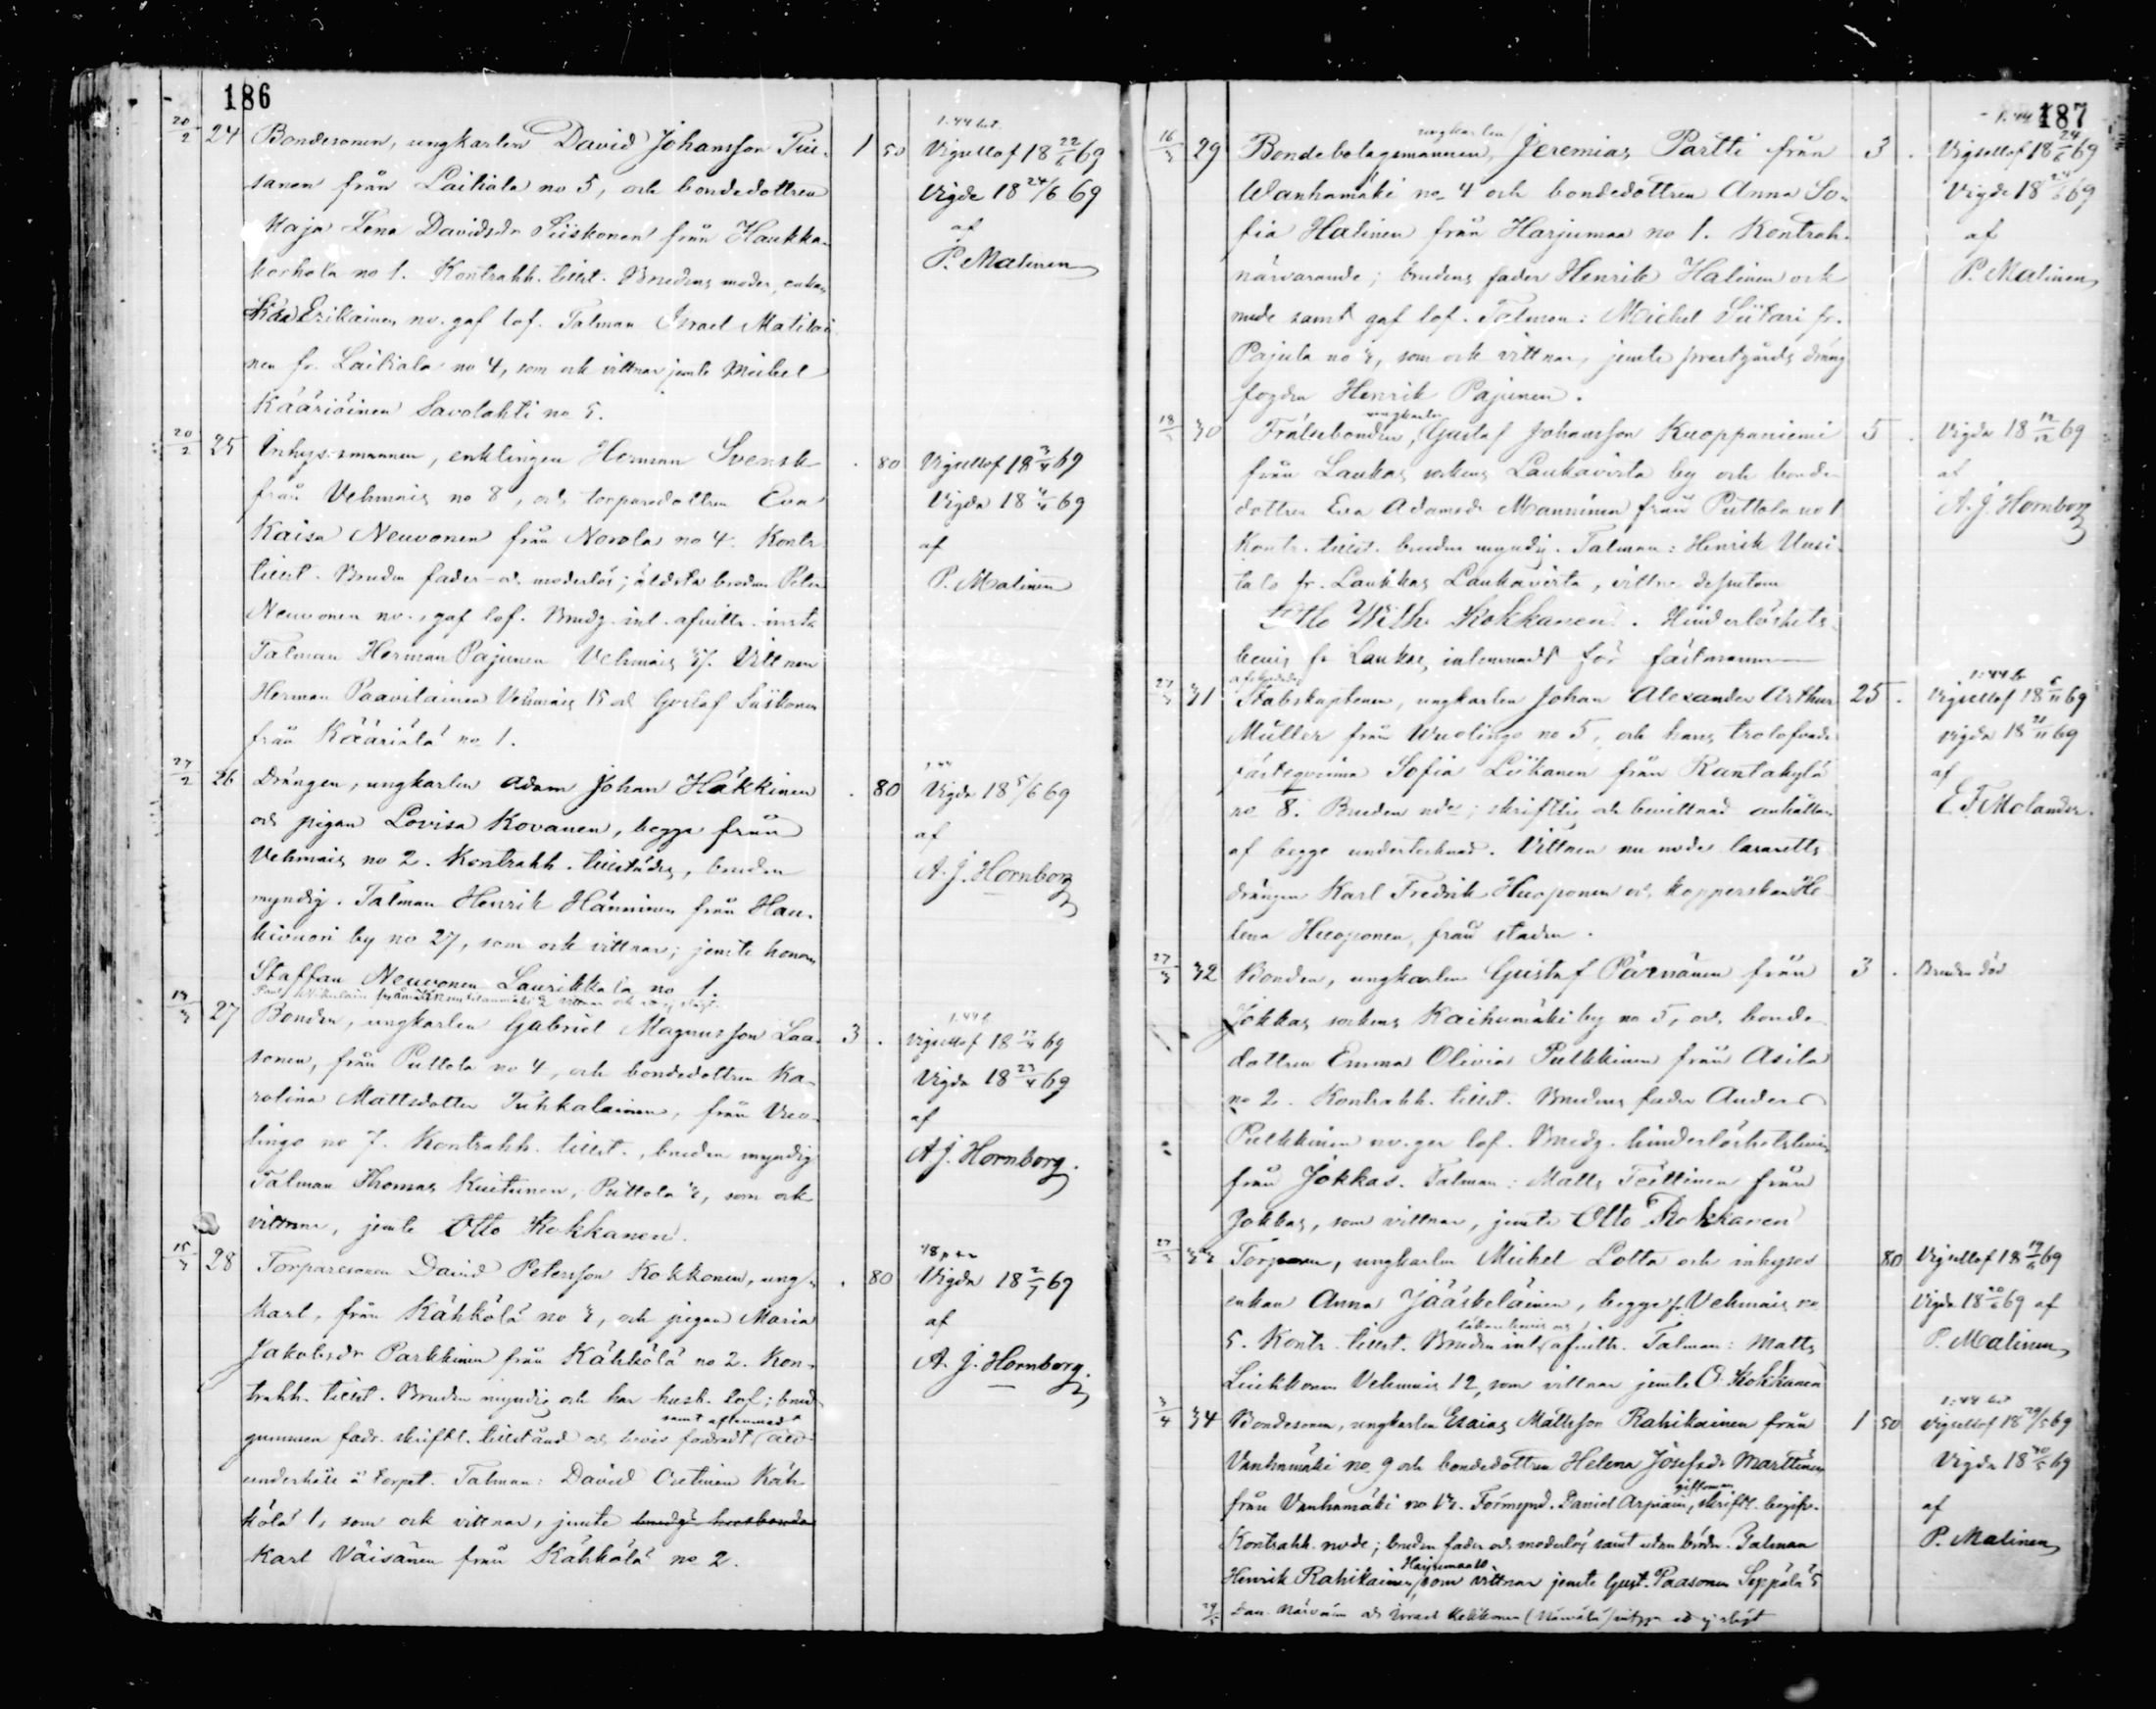 186
20/2 24 Bondesonen, ungkarlen David Johansson Tiu- 1 50
sanen från Laitiala no 5, och bondedottren
Maja Lena Davidsdr Siiskonen från Haukka-
korhola no 1. Kontrahh. tillst. Brudens moder, enkan
Erikäinen no. gaf lof. Talman Israel Matilai-
nen fr. Laitiala no 4, som och vittnar jemte Mickel
Kääriäinen Savolahti no 5.
Vigsellof 18 22/5 69
Vigde 18 24/6 69
af
P. Malinen
20/2 25 Inhysesmannen, enklingen Herman Svensk . 80
från Vehmais no 8, och torparedottren Eva
Kaisa Neuvonen från Norola no 4. Kontr.
tillst. Bruden fader- och moderlös; äldsta brodren Peter
Neuvonen no., gaf lof. Brudg. inl. afvittr. insta
Talman Herman Pajunen Vehmais 3/. Vittnen
Herman Paavilainen Vehmais 15 och Gustaf Siiskonen
från Kääriälä no 1.
Vigsellof 18 3/4 69
Vigda 18 4/4 69
af
P. Malinen
27/2 26 Drängen, ungkarlen Adam Johan Häkkinen . 80
och pigan Lovisa Kovanen, begge från
Vehmais no 2. Kontrahh. tillstädes, bruden
myndig. Talman Henrik Hänninen från Hau-
kivuori by no 27, som och vittnar; jemte honom
Staffan Neuvonen Laurikkala no 1.
1.44
Vigda 18 5/6 69
af
A. J. Hornborg
13/3 27 Bonden, ungkarlen Gabriel Magnusson Laa- 3 .
sonen, från Puttola no 4, och bondedottren Ka-
rolina Mattsdotter Tuhkalainen, från Vuo-
lingo no 7. Kontrahh. tillst., bruden myndig
Talman Thomas Kuitunen, Puttola 3, som och
vittnar, jemte Otto Kokkanen.
Vigsellof 18 17/4 69
Vigda 18 23/4 69
af
A. J. Hornborg.
15/3 28 Torparesonen David Petersson Kokkonen, ung- . 80
karl, från Kähkölä no 3, och pigan Maria
Jakobsdr Parkkinen från Kähkölä no 2. Kon-
trahh. tillst. Bruden myndig och har husb. lof; brud-
gummen fadr. skriftl. tillstånd och bevis
underhåll å torpet. Talman: David Oretinen Käh-
kölä 1, som och vittnar, jemte brudgs husbonde
Karl Väisänen från Kähkölä no 2.
Vigda 18 2/7 69
af
A. J. Hornborg.
187
16/3 29 Bondebolagsmannen, ungkarlen Jeremias Partti från 3 .
Wanhamäki no 4 och bondedottren Anna So-
fia Halinen från Harjumaa no 1. Kontrah.
närvarande; brudens fader Henrik Halinen ock
nvde samt gaf lof. Talman: Michel Siitari fr.
Pajula no 3, som och vittnar, jemte prestgårds dräng
fogden Henrik Pajunen.
Vigsellof 18 24/6 69
Vigde 18 24/6 69
af
P. Malinen
18/3 30 Frälsebonden, ungkarlen Gustaf Johansson Kuoppaniemi 5 .
från Laukas sockens Laukavirta by och bonde-
dottren Eva Adamsdr Manninen från Puttola no 1
Kontr. tillst. bruden myndig. Talman: Henrik Uusi-
talo fr. Laukkas Laukavirta, vittne dessutom
Otto Wilh. Kokkanen. Hinderlöshets-
bevis fr Laukas inlemnadt för fästmannen
Vigda 18 12/12 69
af
A. J. Hornborg
27/3 31 afskedade Stabskaptenen, ungkarlen Johan Alexander Arthur 25 .
Müller från Wuolingo no 5, och hans trolofvade
fästeqvinna Sofia Liikanen från Rantakylä
no 8. Bruden nde; skriftlig och bevittnad anhållan
af begge undertecknad. Vittnen nu nvde lasaretts
drängen Karl Fredrik Huoponen och kopperskan He-
lena Huoponen, från staden.
Vigsellof 18 6/11 69
vigda 18 21/11 69
af
E. F. Molander.
27/3 32 Bonden, ungkarlen Gustaf Pärnänen från 3 .
Jokkas sockens Kaihumäki by no 5, och bonde-
dottren Emma Olivia Pulkkinen från Asila
no 2. Kontrahh. tillst. Brudens fader Anders
Pulkkinen nv. ger lof. Brudg. hinderlöshetsbevis
från Jokkas. Talman: Matts Teittinen från
Jokkas, som vittnar, jemte Otto Kokkanen
Bruden död
27/3 33 Torparen, ungkarlen Michel Lotta och inhyses 80
enkan Anna Jääskeläinen, begge fr. Vehmais no
5. Kontr. tillst. Bruden inl. afvittr. Talman: Matts
Liukkonen Vehmais 12, som vittnar jemte O. Kokkanen
Vigsellof 18 19/6 69
Vigda 18 20/6 69 af
P. Malinen
3/4 34 Bondesonen, ungkarlen Esaias Mattsson Rahikainen från 1 50
Vanhamäki no 9 och bondedottren Helena Josefsdr Marttinen
från Vanhamäki no 13. Förmynd. Daniel Arpiain, giftoman, skriftl. begifv.
Kontrahh. nvde; bruden fader och moderlös samt utan bröder. Talman
Henrik Rahikainen, Harjumaa 10, som vittnar jemte Gust. Paasonen Seppälä 5
1:44 bet
Vigsellof 18 29/5 69
Vigda 18 30/5 69
af
P. Malinen